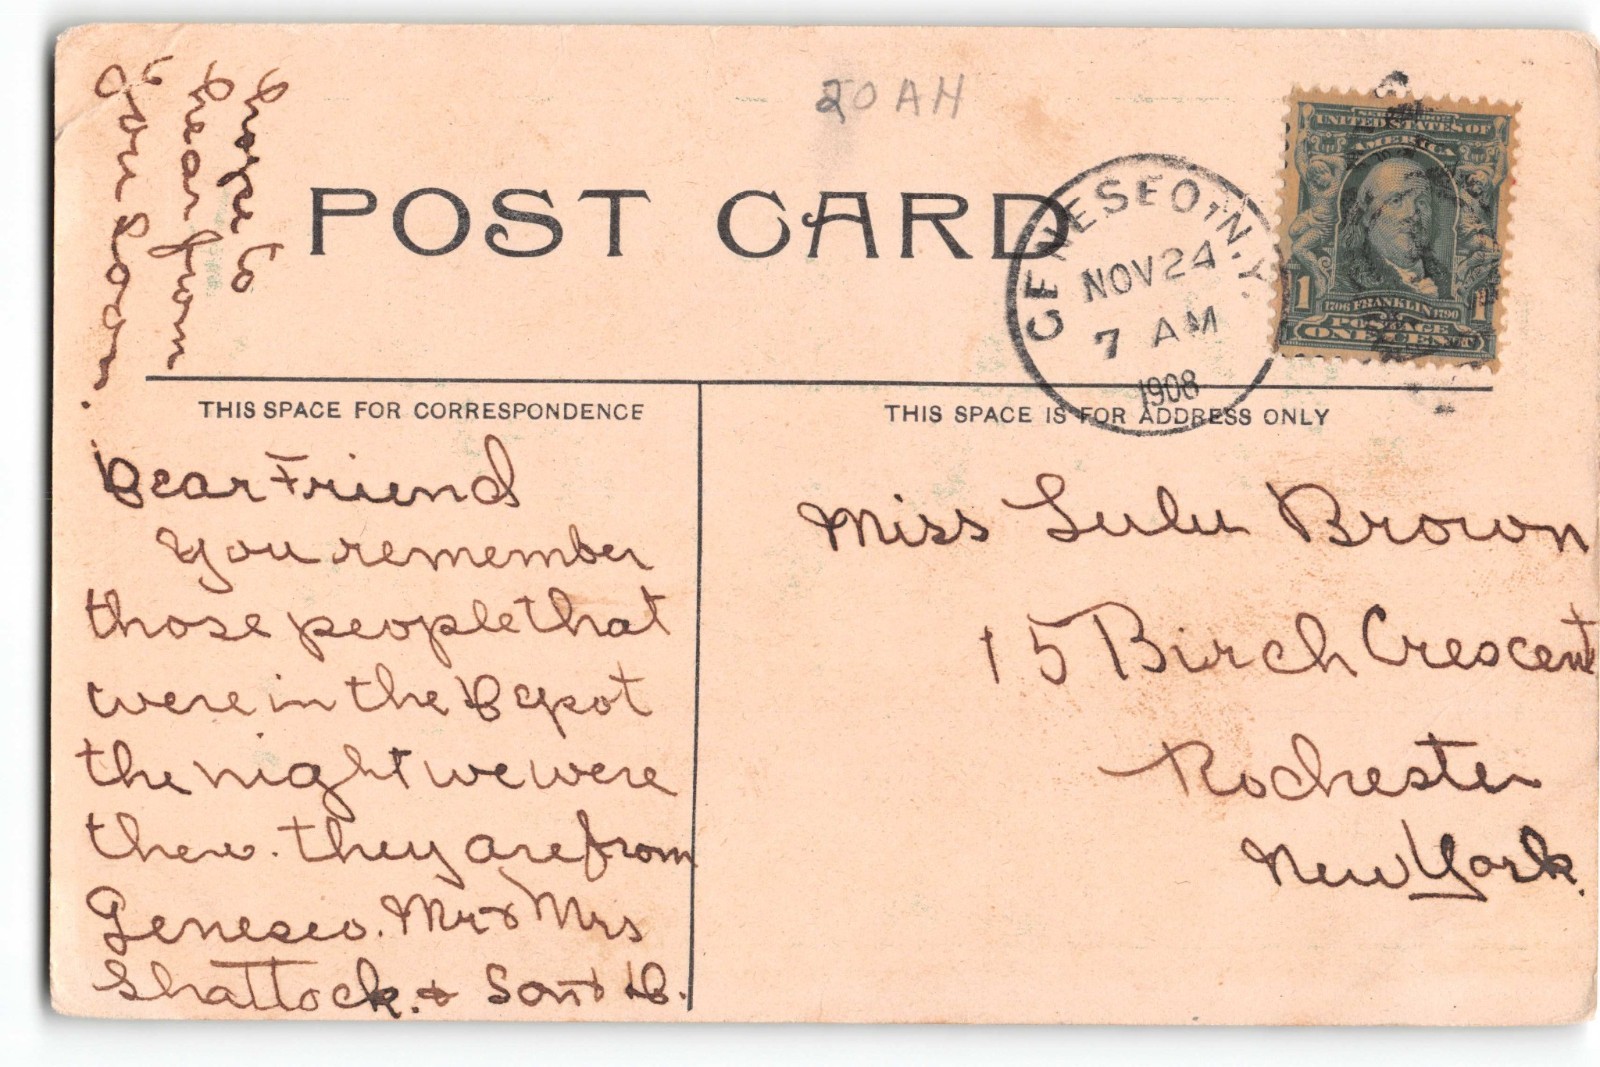 20AH
POST CARD
GENESEO, N.Y.
NOV 24
7 AM
1908
SERIES 1902
UNITED STATES OF
AMERICA
1 1
1706 FRANKLIN 1790
POSTAGE
ONE CENT
THIS SPACE FOR CORRESPONDENCE
THIS SPACE IS FOR ADDRESS ONLY
Dear Friend
You remember
those people that
were in the Depot
the night we were
there. they are from
Geneseo. Mr & Mrs
Shattock. & Son
hope to
hear from
you soon.
Miss Lulu Brown
15 Birch Crescent
Rochester
New York.